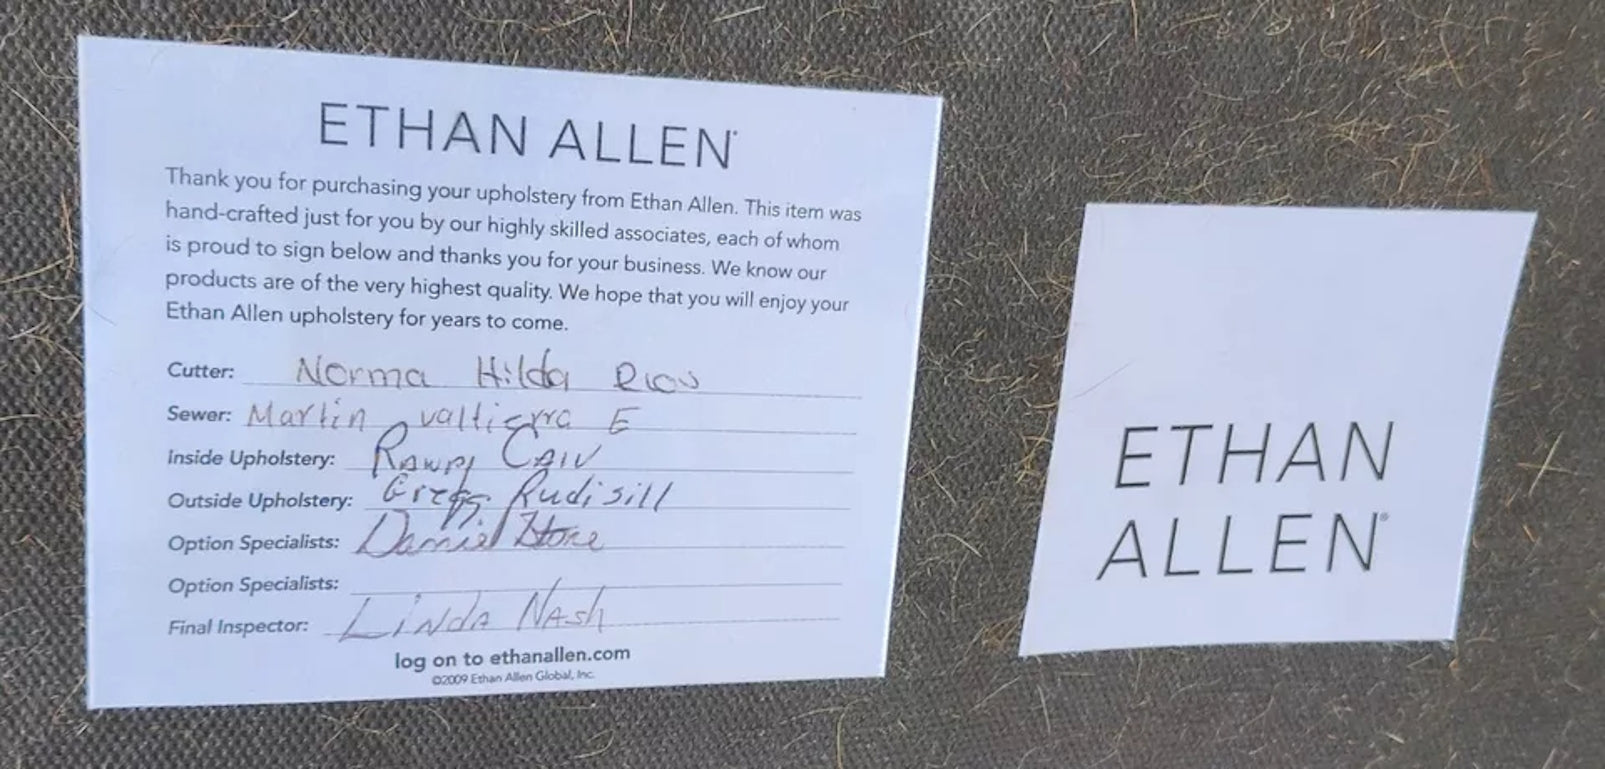 ETHAN ALLEN®
Thank you for purchasing your upholstery from Ethan Allen. This item was
hand-crafted just for you by our highly skilled associates, each of whom
is proud to sign below and thanks you for your business. We know our
products are of the very highest quality. We hope that you will enjoy your
Ethan Allen upholstery for years to come.
Cutter: Norma Hilda Rios
Sewer: Martin valtierra E
Inside Upholstery:
Outside Upholstery: Gregg Rudisill
Option Specialists: Daniel Stone
Option Specialists:
Final Inspector: Linda Nash
log on to ethanallen.com
©2009 Ethan Allen Global, Inc.
ETHAN
ALLEN®